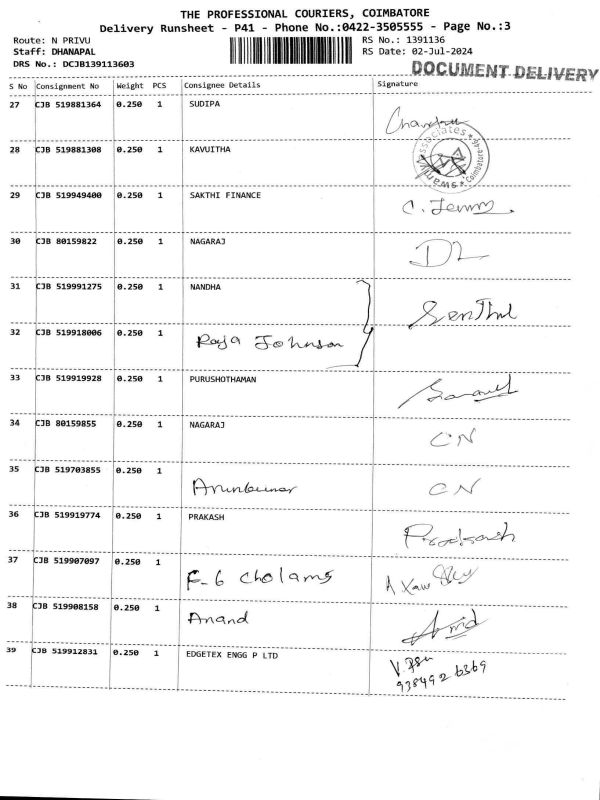 THE PROFESSIONAL COURIERS, COIMBATORE
Delivery Runsheet - P41 - Phone No.:0422-3505555 - Page No.:3
Route: N PRIVU RS No.: 1391136
Staff: DHANAPAL RS Date: 02-Jul-2024
DRS No.: DCJB139113603
DOCUMENT DELIVERY
S No Consignment No Weight PCS Consignee Details Signature
27 CJB 519881364 0.250 1 SUDIPA
28 CJB 519881308 0.250 1 KAVUITHA
29 CJB 519949400 0.250 1 SAKTHI FINANCE
30 CJB 80159822 0.250 1 NAGARAJ
31 CJB 519991275 0.250 1 NANDHA Senthil
32 CJB 519918006 0.250 1 Raja Johnson
33 CJB 519919928 0.250 1 PURUSHOTHAMAN
34 CJB 80159855 0.250 1 NAGARAJ CN
35 CJB 519703855 0.250 1 Arunkumar CN
36 CJB 519919774 0.250 1 PRAKASH Prakash
37 CJB 519907097 0.250 1 F-6 cholams
38 CJB 519908158 0.250 1 Anand
39 CJB 519912831 0.250 1 EDGETEX ENGG P LTD
938492 6369